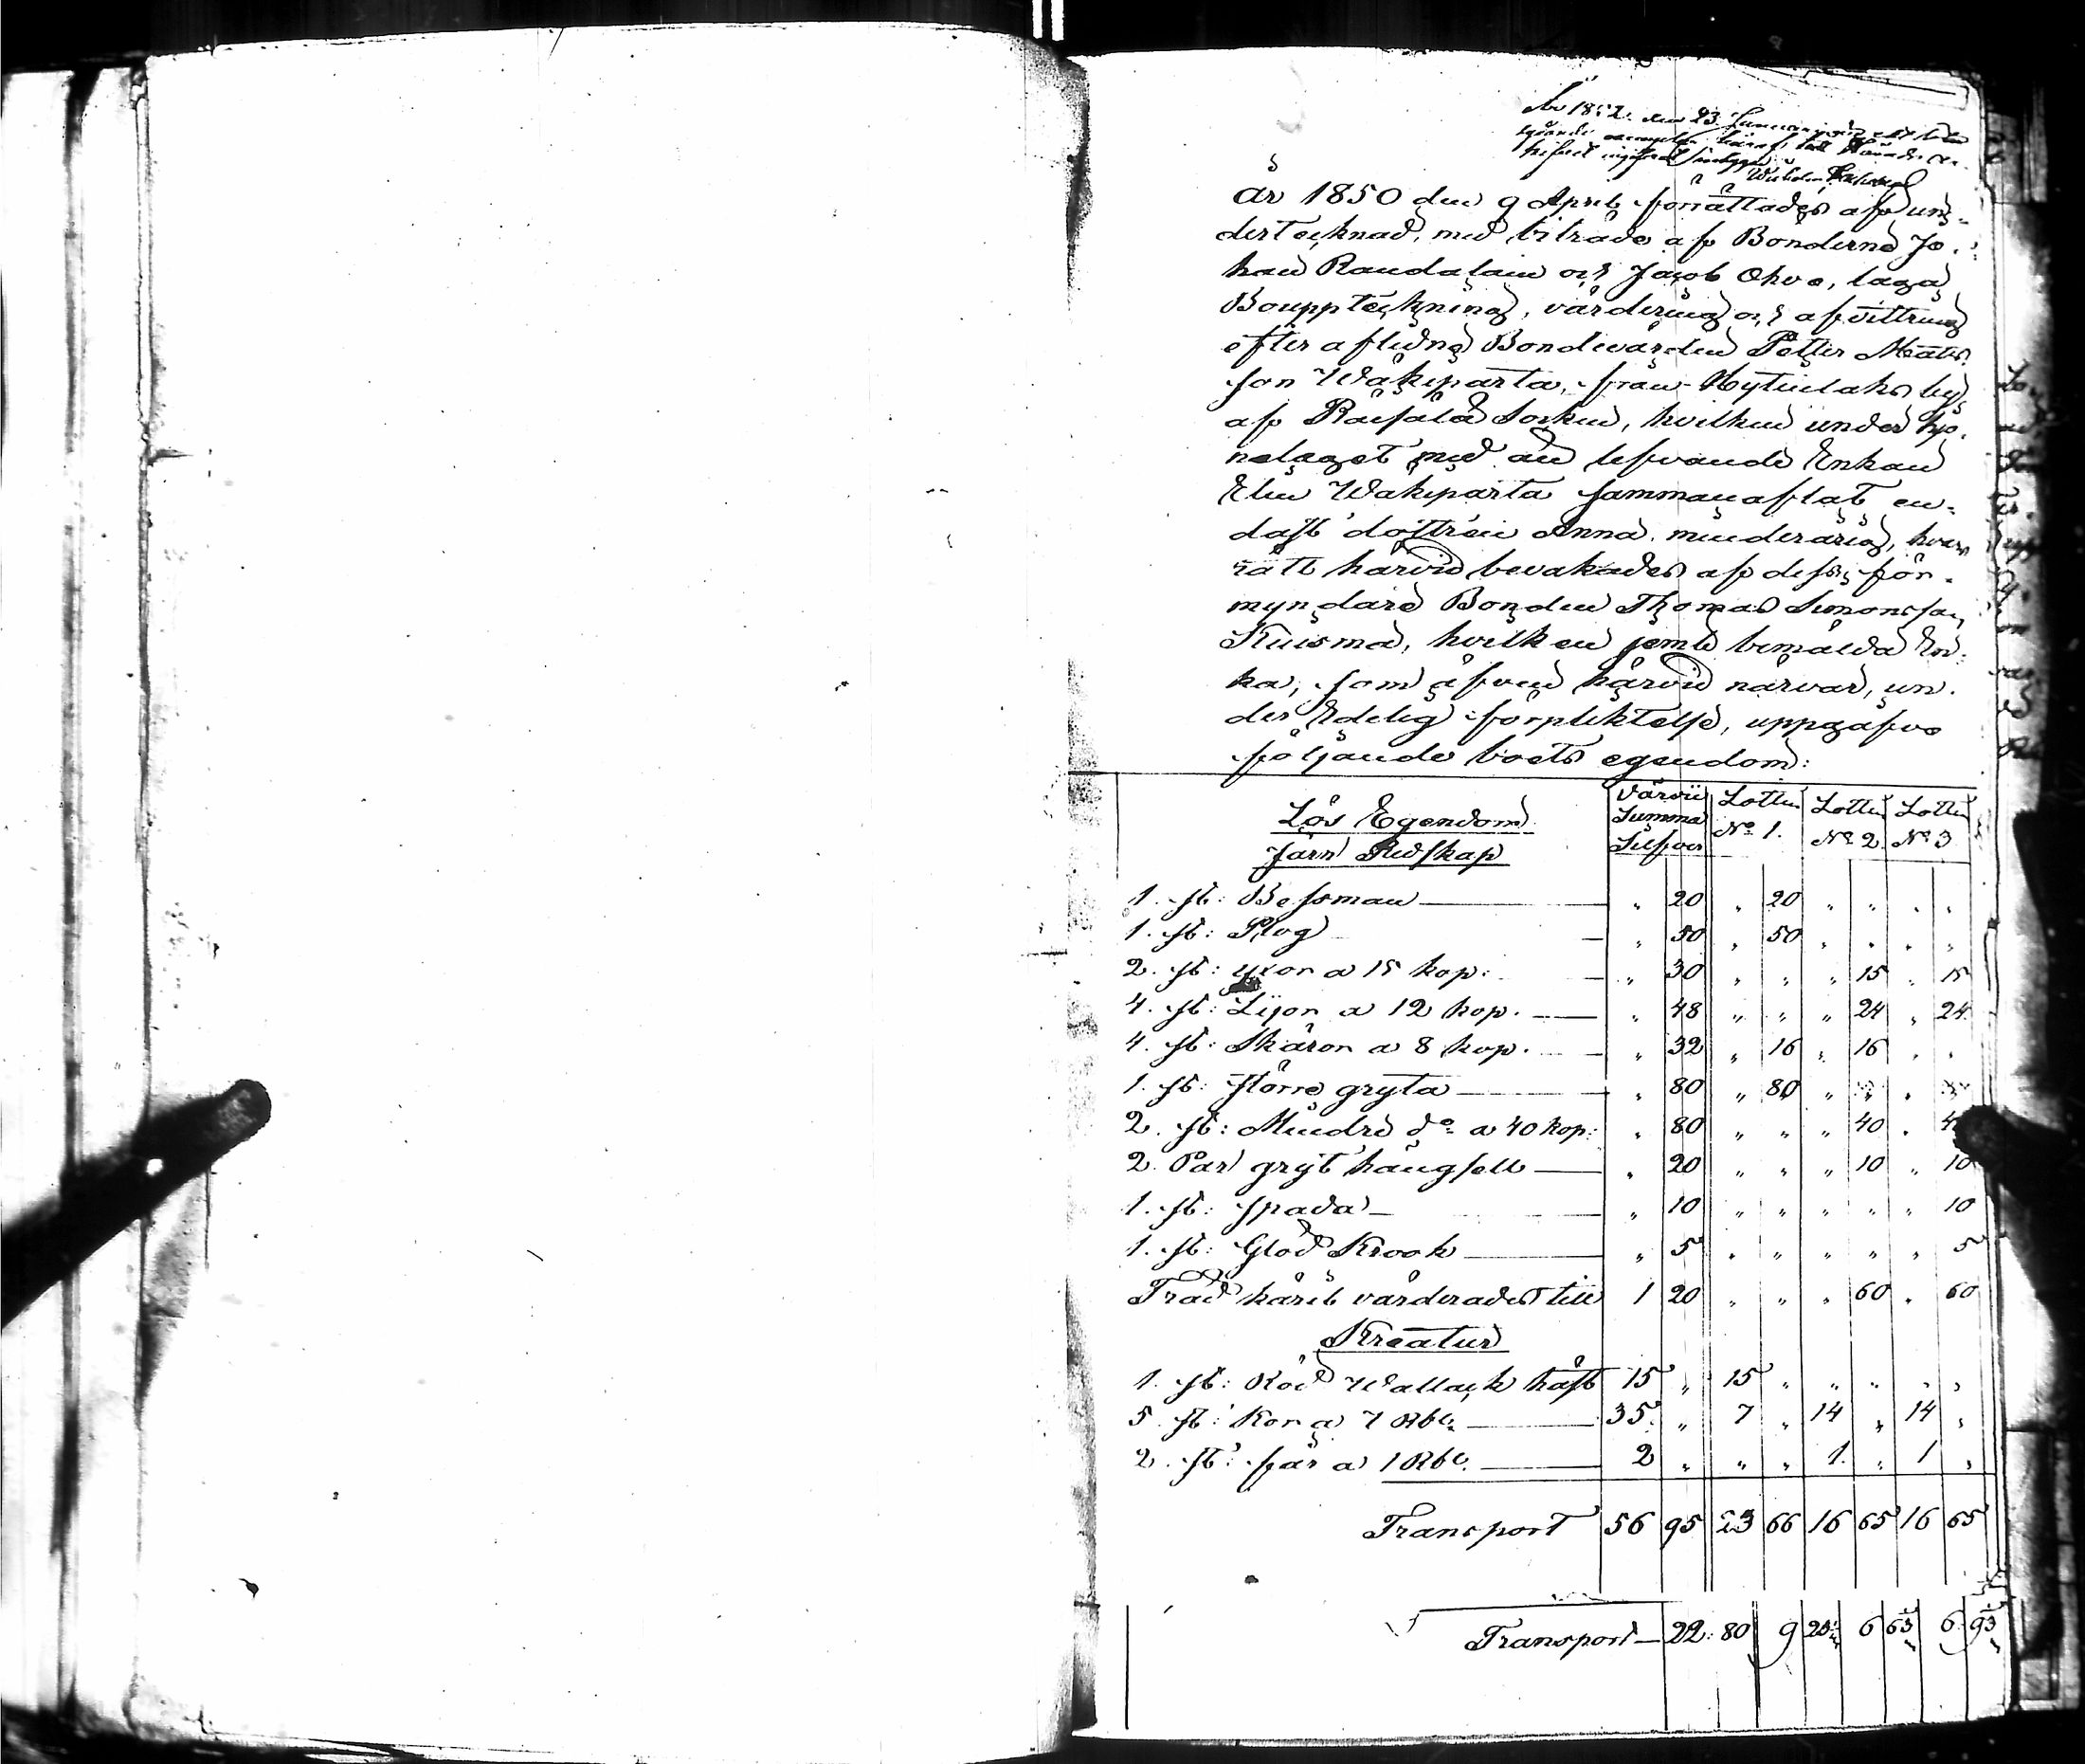 År 1850 den 9 April förrättades af un-
dertecknad, med biträde af Bönderne Jo-
han Raudalain och Jacob Ohvo, laga
Bouppteckning, värdering och afvittring
efter aflidne Bondevärden Petter Matts
son Wäkiparta, från by
af Räisälä Sockn, hvilken under hjo-
nelaget med än lefvande Enkan
Elin Wäkiparta sammanaflat en-
dast dottren Anna, minderårig, hvars
rätt härvid bevakades af dess för-
myndare Bonden Thomas Simonsson
Kuisma, hvilken jemte bemälda En-
ka, som äfven härvid närvar, un-
der Edelig förpliktelse, uppgåfvo
följande boets egendom:
Lös Egendom Värdi Summa Silfver Lotten No 1. Lotten No 2 Lotten No 3
Järn Redskap
1. st: Bessman " 20 " 20 " " " "
1. st: Plog " 50 " 50 " " " "
2. st: yxor a 15 kop: " 30 " " " 15 " 15
4. st: Lijor a 12 kop. " 48 " " " 24 " 24
4. st: Skäror a 8 kop. " 32 " 16 " 16 " "
1. st: större gryta " 80 " 80 " " " "
2. st: Mindre do a 40 kop: " 80 " " " 40 "
2. Par gryt hängsell " 20 " " " 10 " 10
1. st: spada " 10 " " " " " 10
1. st: Glöd Krook " 5 " " " " " 5
Träd käril värderades till 1 20 " " " 60 " 60
Kreatur
1. st: Röd Wallack häst 15 " 15 " " " " "
5. st: Kor a 7 Rbl. 35 " 7 " 14 " 14 "
2. st: får a 1 Rbl. 2 " " " 1 " 1 "
Transport 56 95 23 66 16 65 16 65
Transport 22: 80 9 6 63 6 93